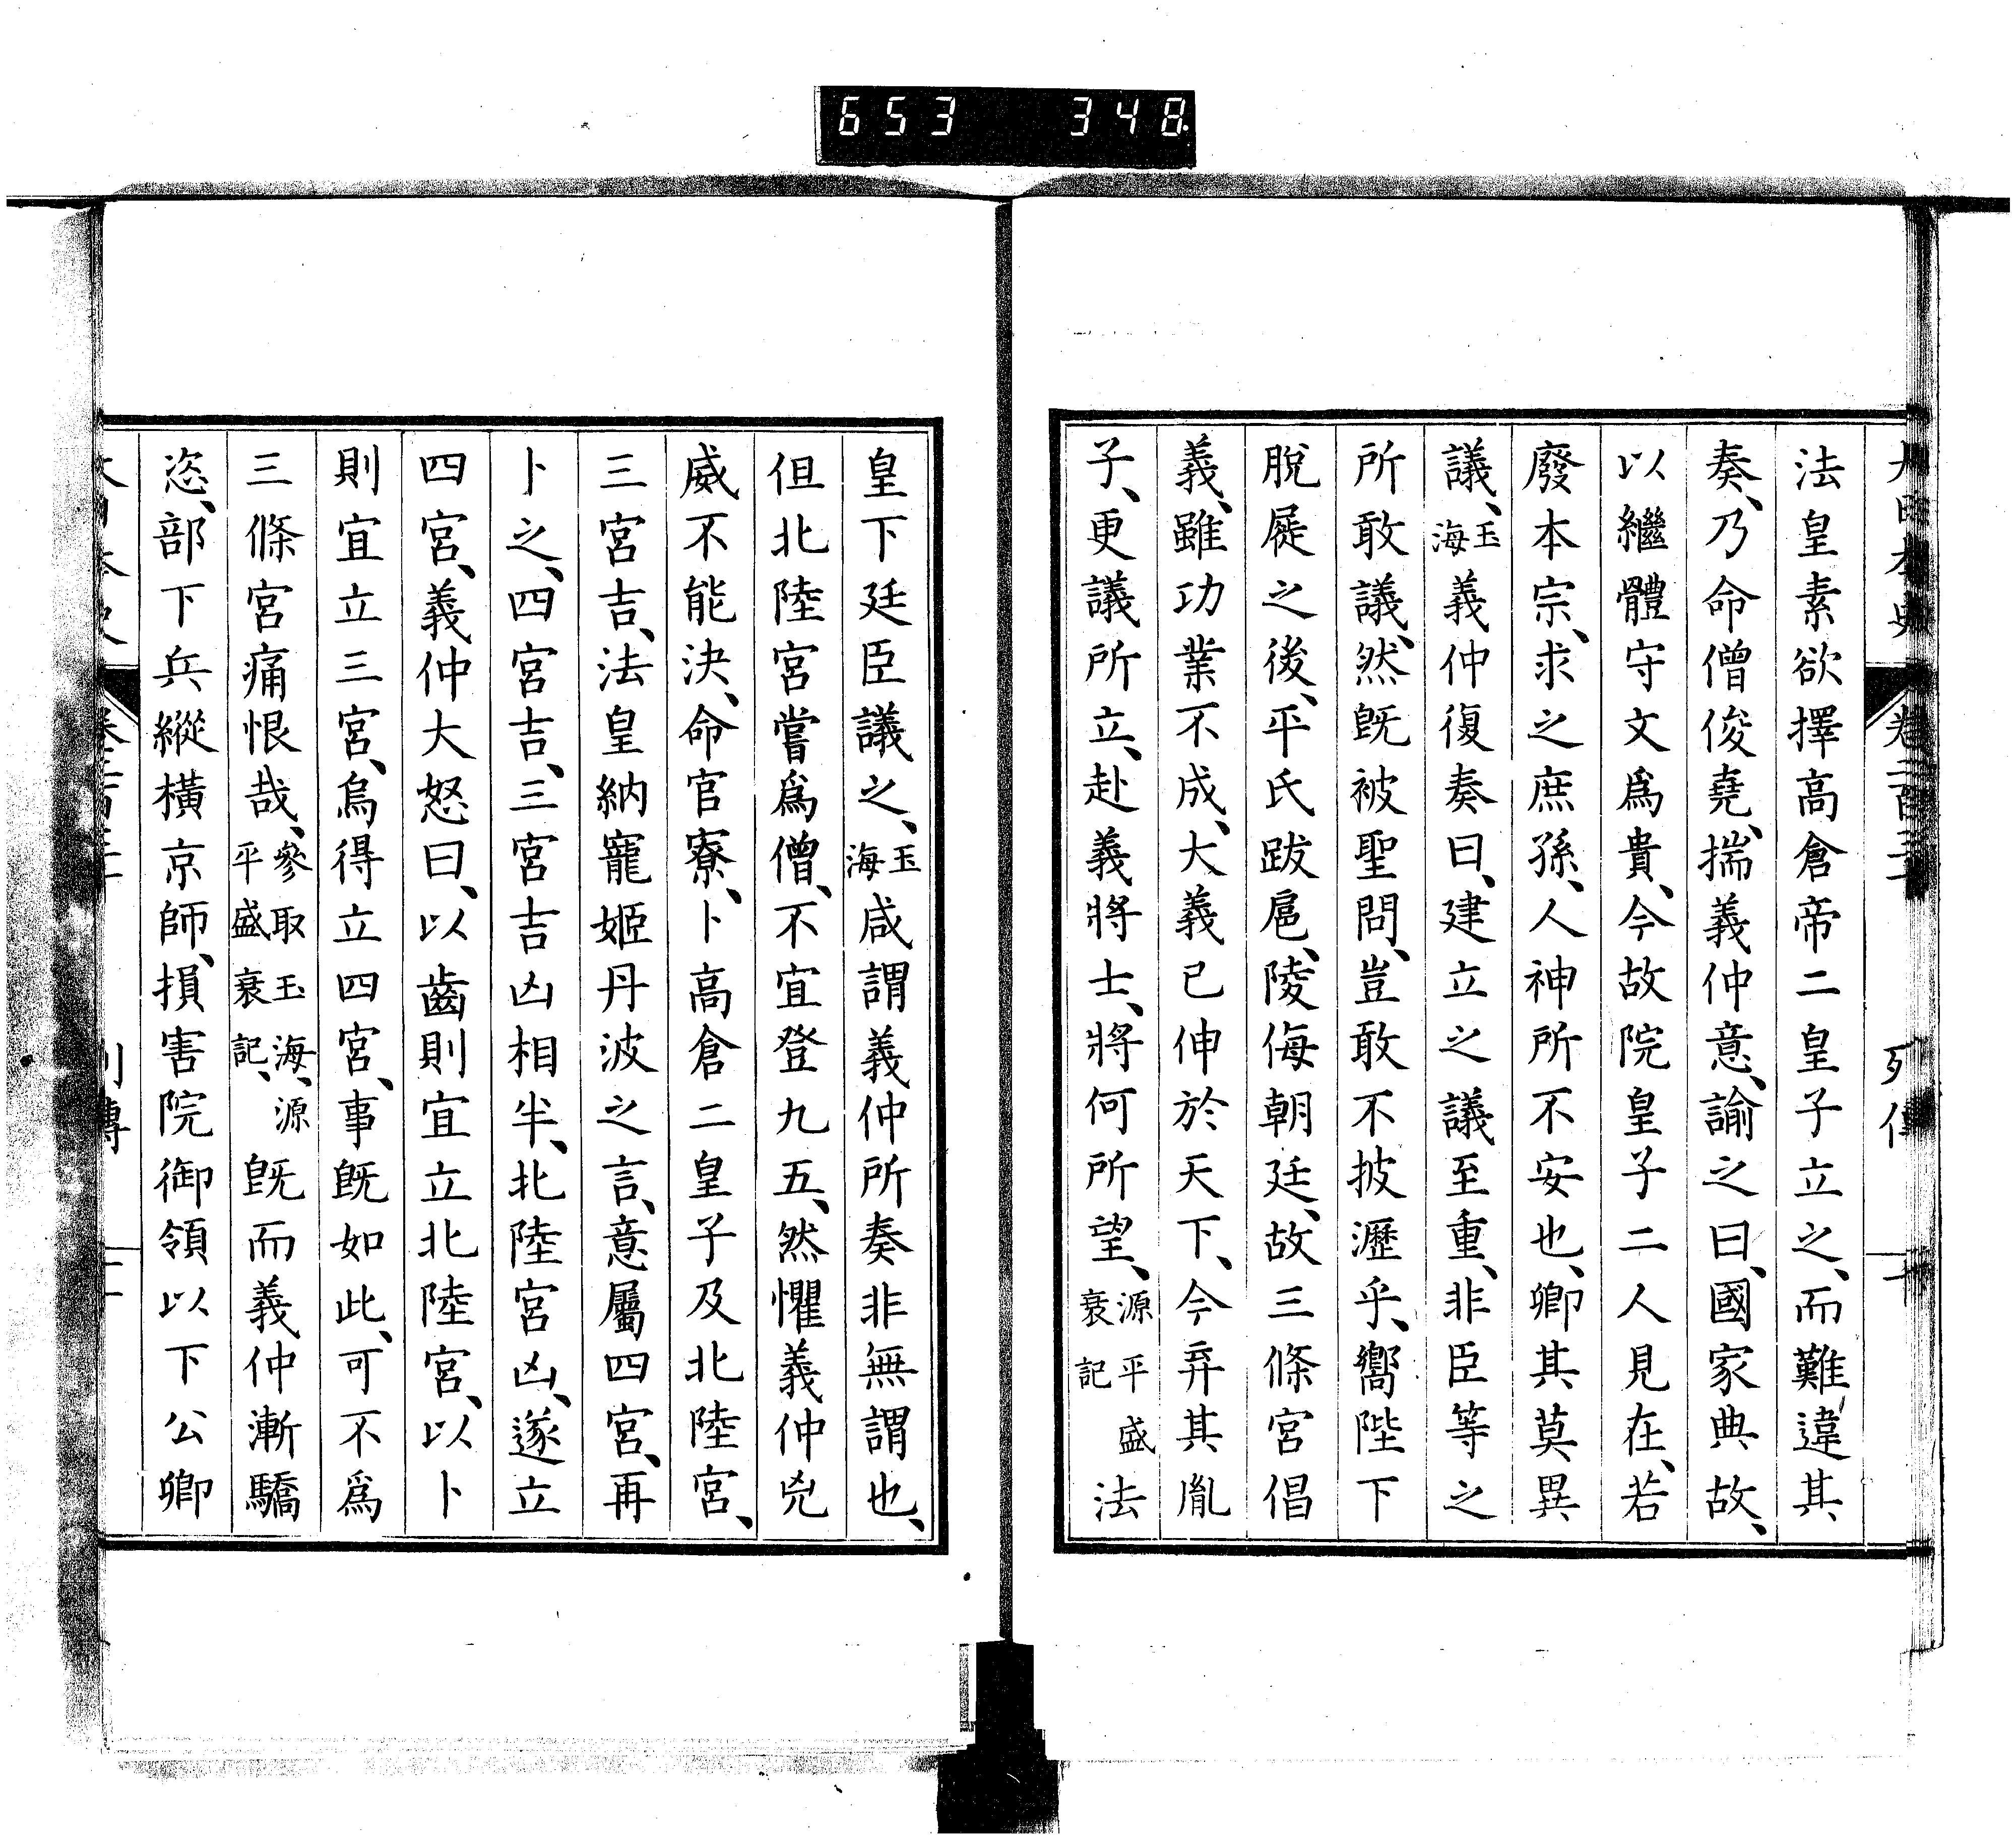 653 348
法皇素欲擇高倉帝二皇子立之、而難違其
奏、乃命僧俊堯、揣義仲意、諭之曰、國家典故、
以繼體守文爲貴、今故院皇子二人見在、若
廢本宗、求之庶孫、人神所不安也、卿其莫異
議、玉海義仲復奏曰、建立之議至重、非臣等之
所敢議、然既被聖問、豈敢不披瀝乎、嚮陛下
脫屣之後、平氏跋扈、陵侮朝廷、故三條宮倡
義、雖功業不成、大義已伸於天下、今弃其胤
子、更議所立、赴義將士、將何所望、源平盛衰記法
皇下廷臣議之、玉海咸謂義仲所奏非無謂也、
但北陸宮嘗爲僧、不宜登九五、然懼義仲兇
威、不能決、命官寮、卜高倉二皇子及北陸宮、
三宮吉、法皇納寵姬丹波之言、意屬四宮、再
卜之、四宮吉、三宮吉凶相半、北陸宮凶、遂立
四宮、義仲大怒曰、以齒則宜立北陸宮、以卜
則宜立三宮、烏得立四宮、事既如此、可不爲
三條宮痛恨哉、參取玉海、源平盛衰記、既而義仲漸驕
恣、部下兵縱橫京師、損害院御領以下公卿